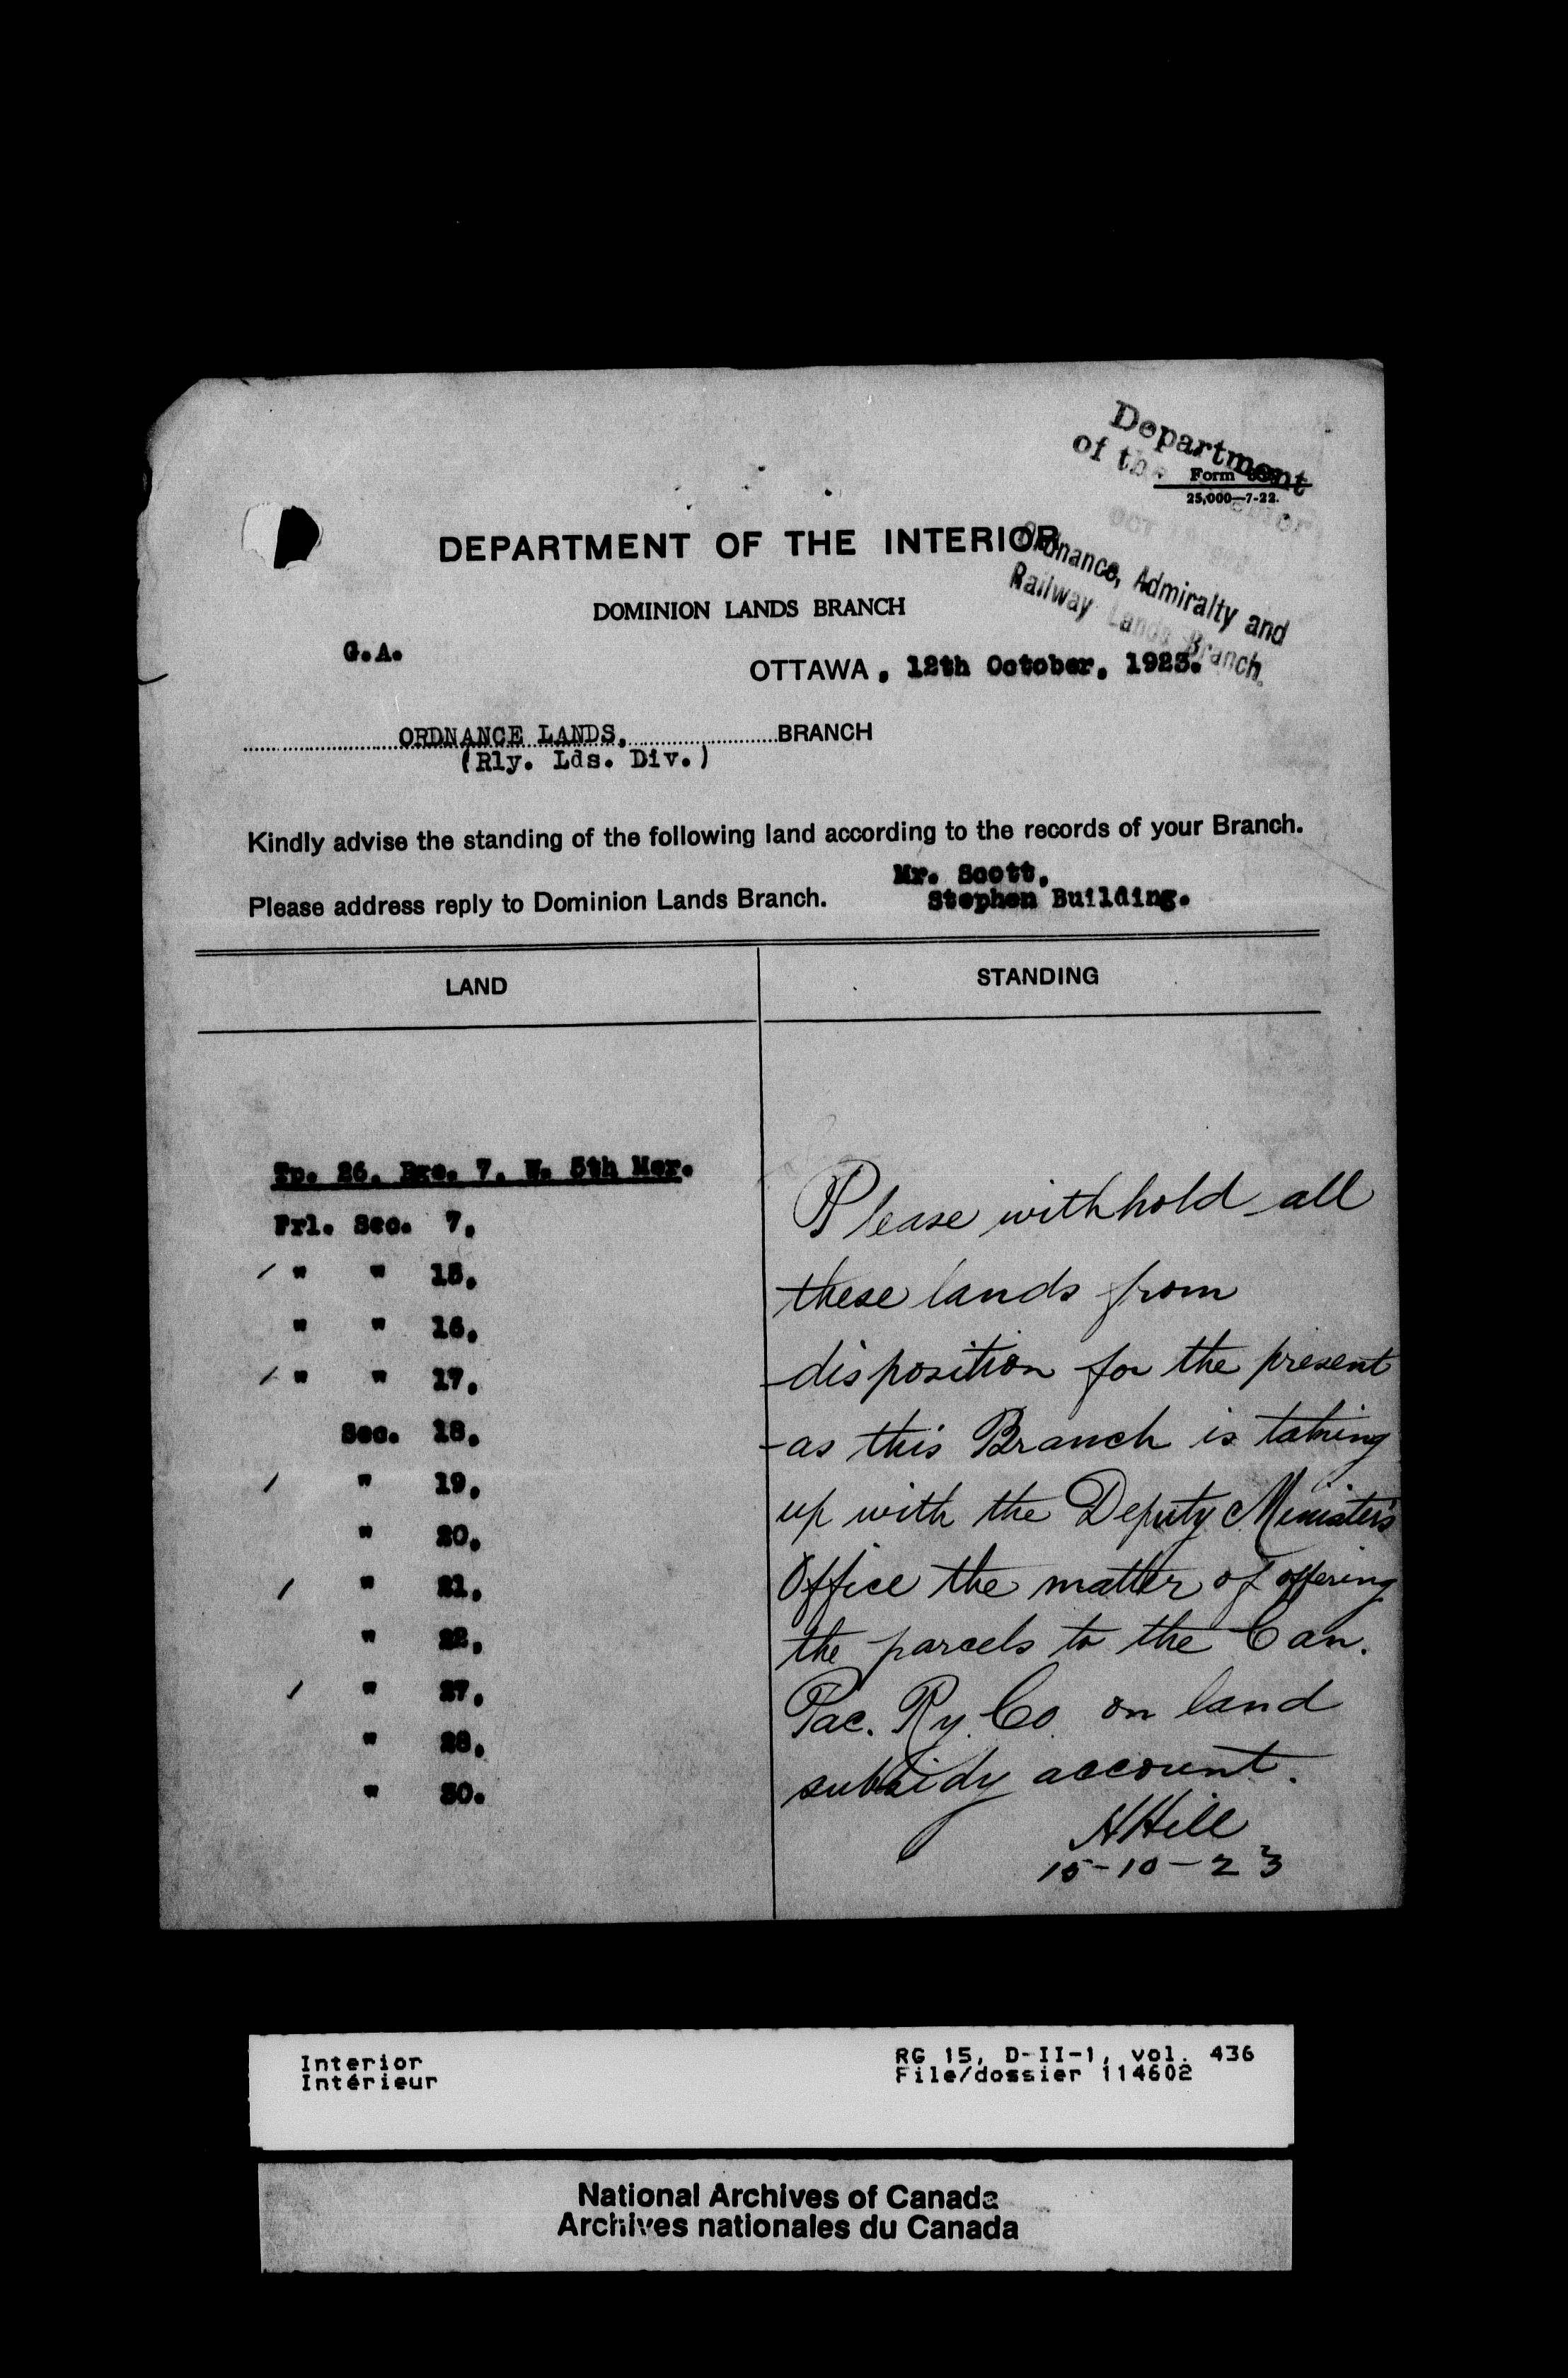 Department
of the Interior
Form
25,000—7-22.
OCT
DEPARTMENT OF THE INTERIOR
Ordnance, Admiralty and
Railway Lands Branch.
DOMINION LANDS BRANCH
G.A.
OTTAWA, 12th October, 1923.
ORDNANCE LANDS, BRANCH
(Rly. Lds. Div.)
Kindly advise the standing of the following land according to the records of your Branch.
Mr. Scott,
Please address reply to Dominion Lands Branch. Stephen Building.
LAND STANDING
Tp. 26, Rge. 7, W. 5th Mer.
Frl. Sec. 7,
" " 15,
" " 16,
" " 17,
Sec. 18,
" 19,
" 20,
" 21,
" 22,
" 27,
" 28,
" 30.
Please withhold all
these lands from
disposition for the present
as this Branch is taking
up with the Deputy Minister's
Office the matter of offering
the parcels to the Can.
Pac. Ry. Co. on land
subsidy account.
H Hill
15-10-23
Interior
Intérieur
RG 15, D-II-1, vol. 436
File/dossier 114602
National Archives of Canada
Archives nationales du Canada